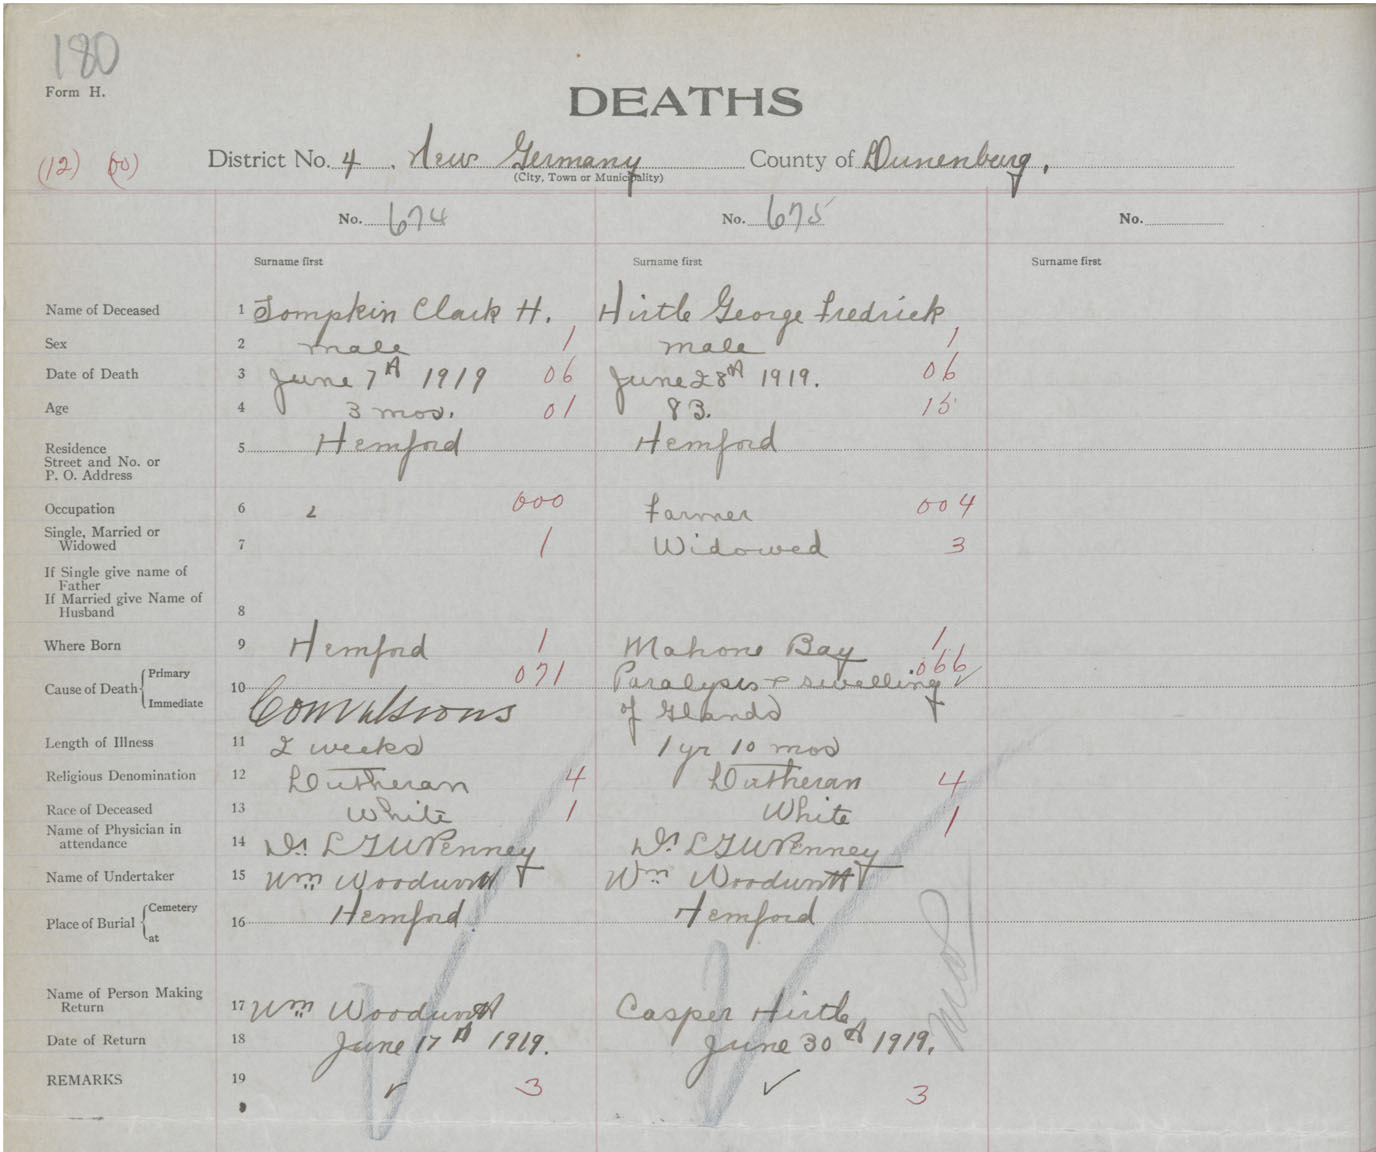 180
Form H.
DEATHS
(12) (00)
District No. 4. New Germany County of Lunenburg.
(City, Town or Municipality)
No. 674 No. 675 No.
Surname first Surname first Surname first
Name of Deceased 1 Tompkin Clark H. Hirtle George Fredrick
Sex 2 male 1 male 1
Date of Death 3 June 7th 1919 06 June 28th 1919. 06
Age 4 3 mos. 01 83. 15
Residence
Street and No. or
P. O. Address 5 Hemford Hemford
Occupation 6 000 Farmer 004
Single, Married or
Widowed 7 1 Widowed 3
If Single give name of
Father
If Married give Name of
Husband 8
Where Born 9 Hemford 1 Mahone Bay 1
Cause of Death { Primary 071 Paralysis + swelling 066
Immediate 10 Convulsions of Glands
Length of Illness 11 2 weeks 1 yr 10 mos
Religious Denomination 12 Lutheran 4 Lutheran 4
Race of Deceased 13 White 1 White 1
Name of Physician in
attendance 14 Dr. L G W Penney Dr. L G W Penney
Name of Undertaker 15 Wm Woodworth Wm Woodworth
Place of Burial { Cemetery
at 16 Hemford Hemford
Name of Person Making
Return 17 Wm Woodworth Casper Hirtle
Date of Return 18 June 17th 1919. June 30th 1919.
REMARKS 19 ✓ 3 ✓ 3